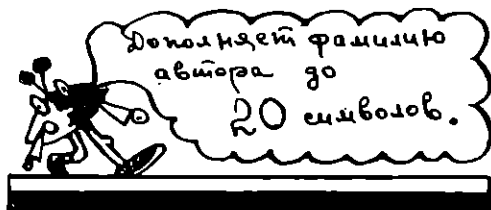 Дополняет фамилию
автора до
20 символов.